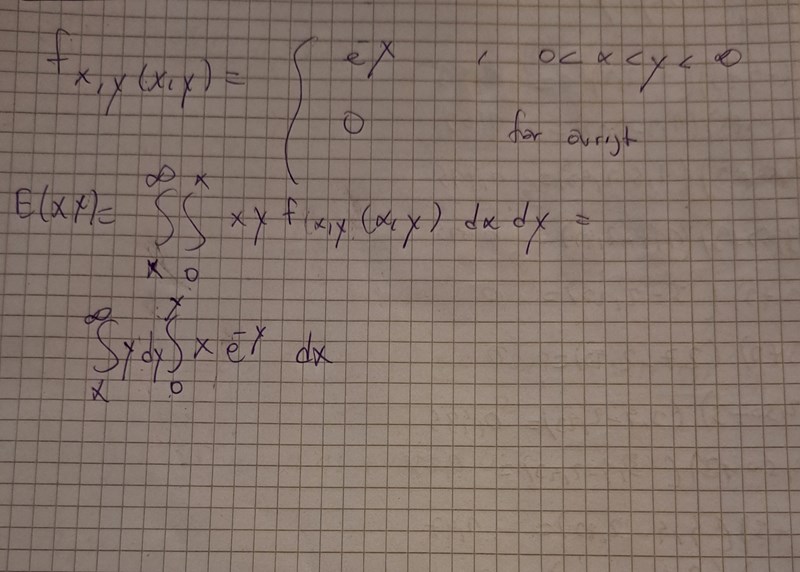 f x,y (x,y) = { e^-y , 0 < x < y < ∞
0 for övrigt
E(XY) = ∫_x^∞ ∫_0^x xy f x,y (x,y) dx dy =
∫_x^∞ y dy ∫_0^y x e^-y dx